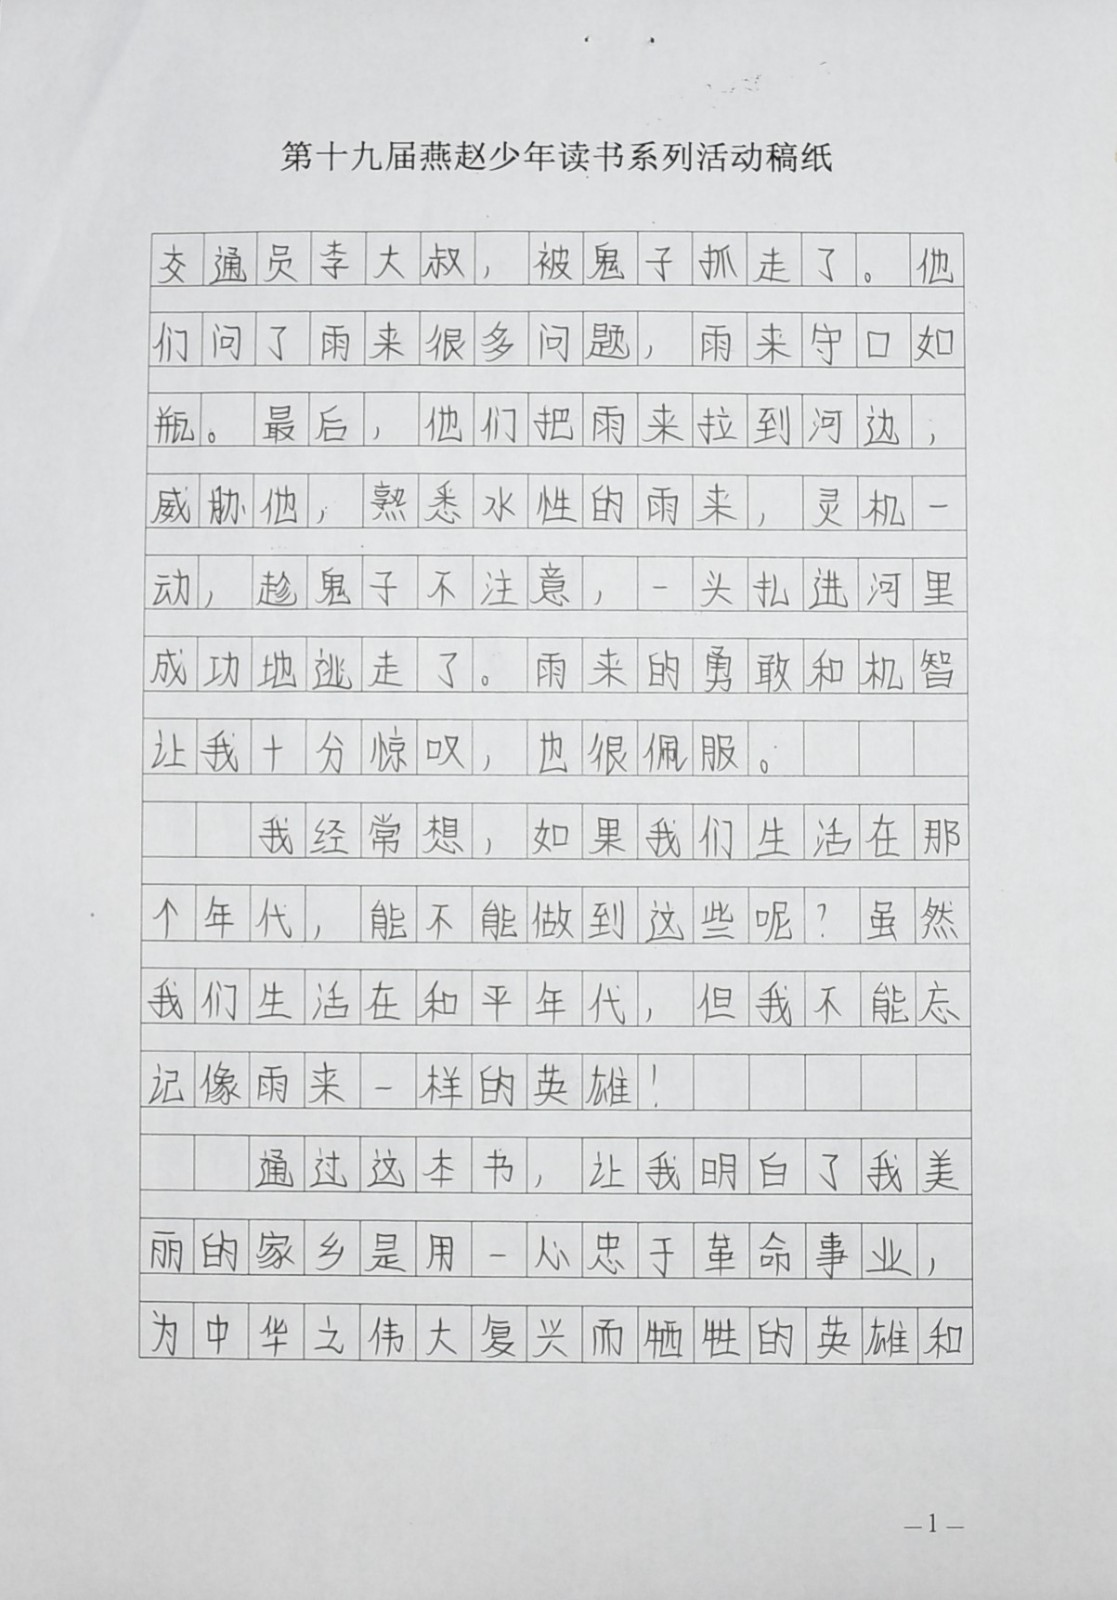 第十九届燕赵少年读书系列活动稿纸
交通员李大叔，被鬼子抓走了。他
们问了雨来很多问题，雨来守口如
瓶。最后，他们把雨来拉到河边，
威胁他，熟悉水性的雨来，灵机一
动，趁鬼子不注意，一头扎进河里
成功地逃走了。雨来的勇敢和机智
让我十分惊叹，也很佩服。
我经常想，如果我们生活在那
个年代，能不能做到这些呢？虽然
我们生活在和平年代，但我不能忘
记像雨来一样的英雄！
通过这本书，让我明白了我美
丽的家乡是用一心忠于革命事业，
为中华之伟大复兴而牺牲的英雄和
—1—